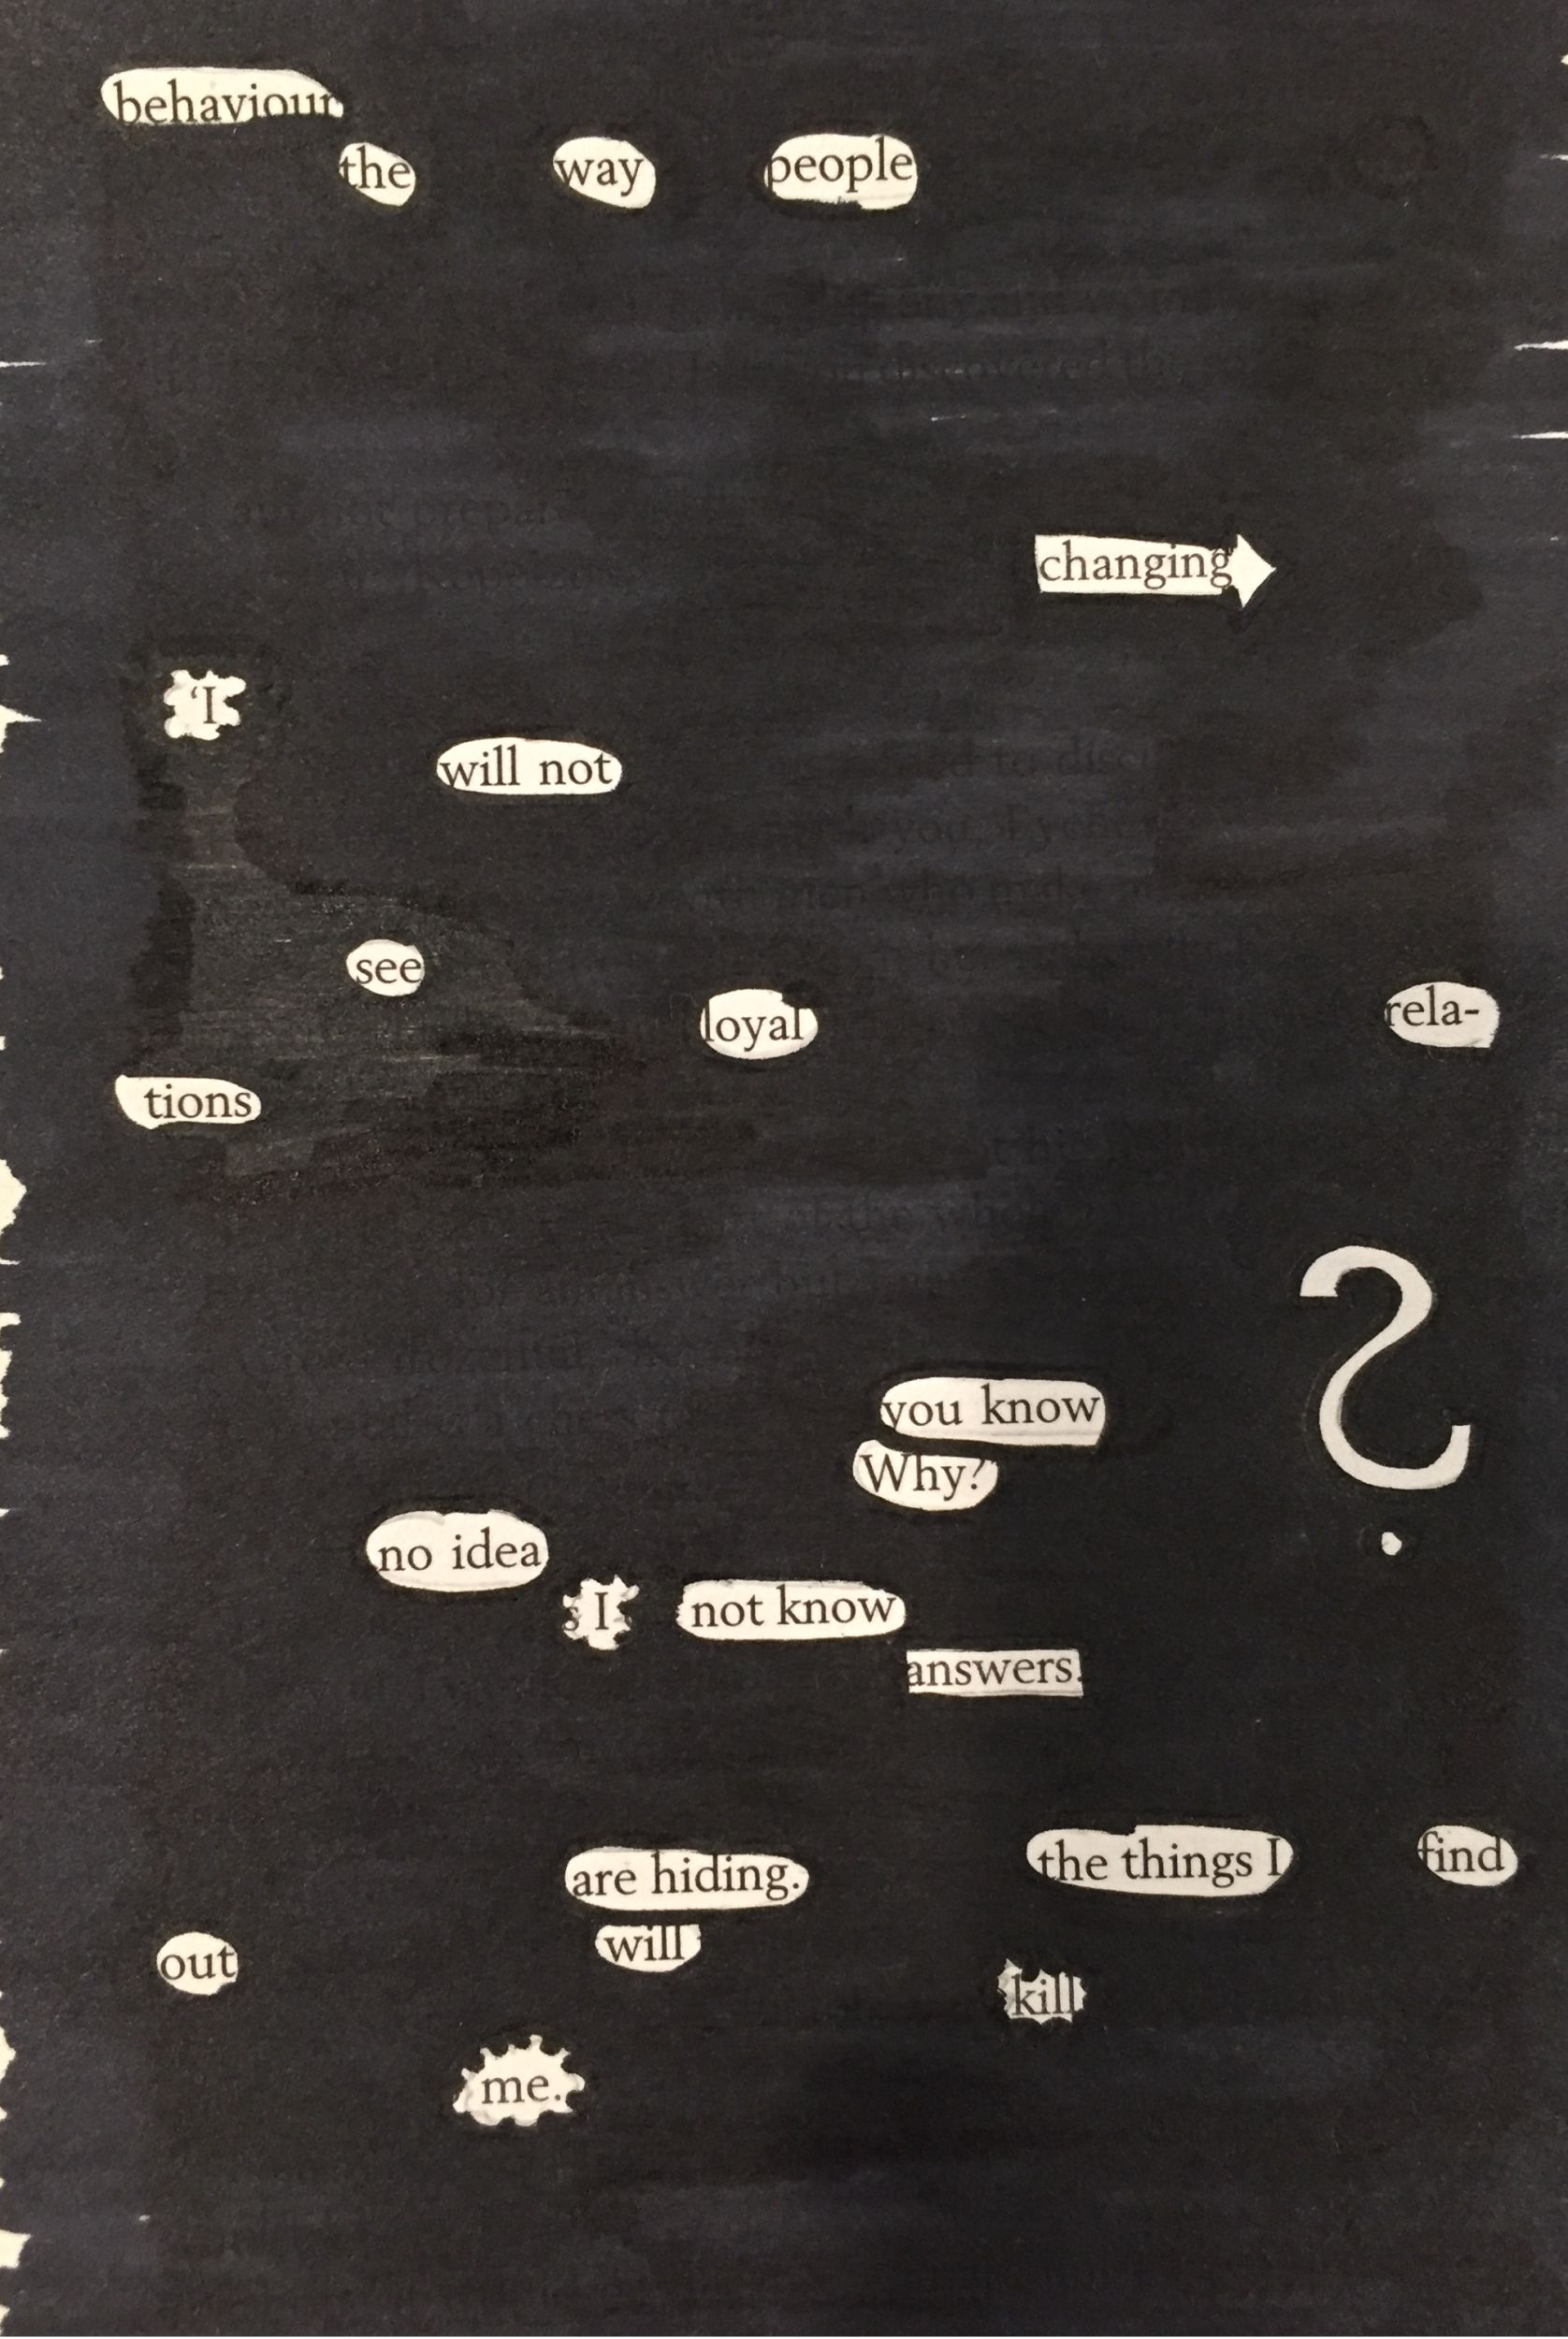 behaviour
the way people
changing
'I
will not
see
loyal rela-
tions
?
you know
Why?
no idea
I not know
answers.
are hiding. the things I find
out will kill
me.